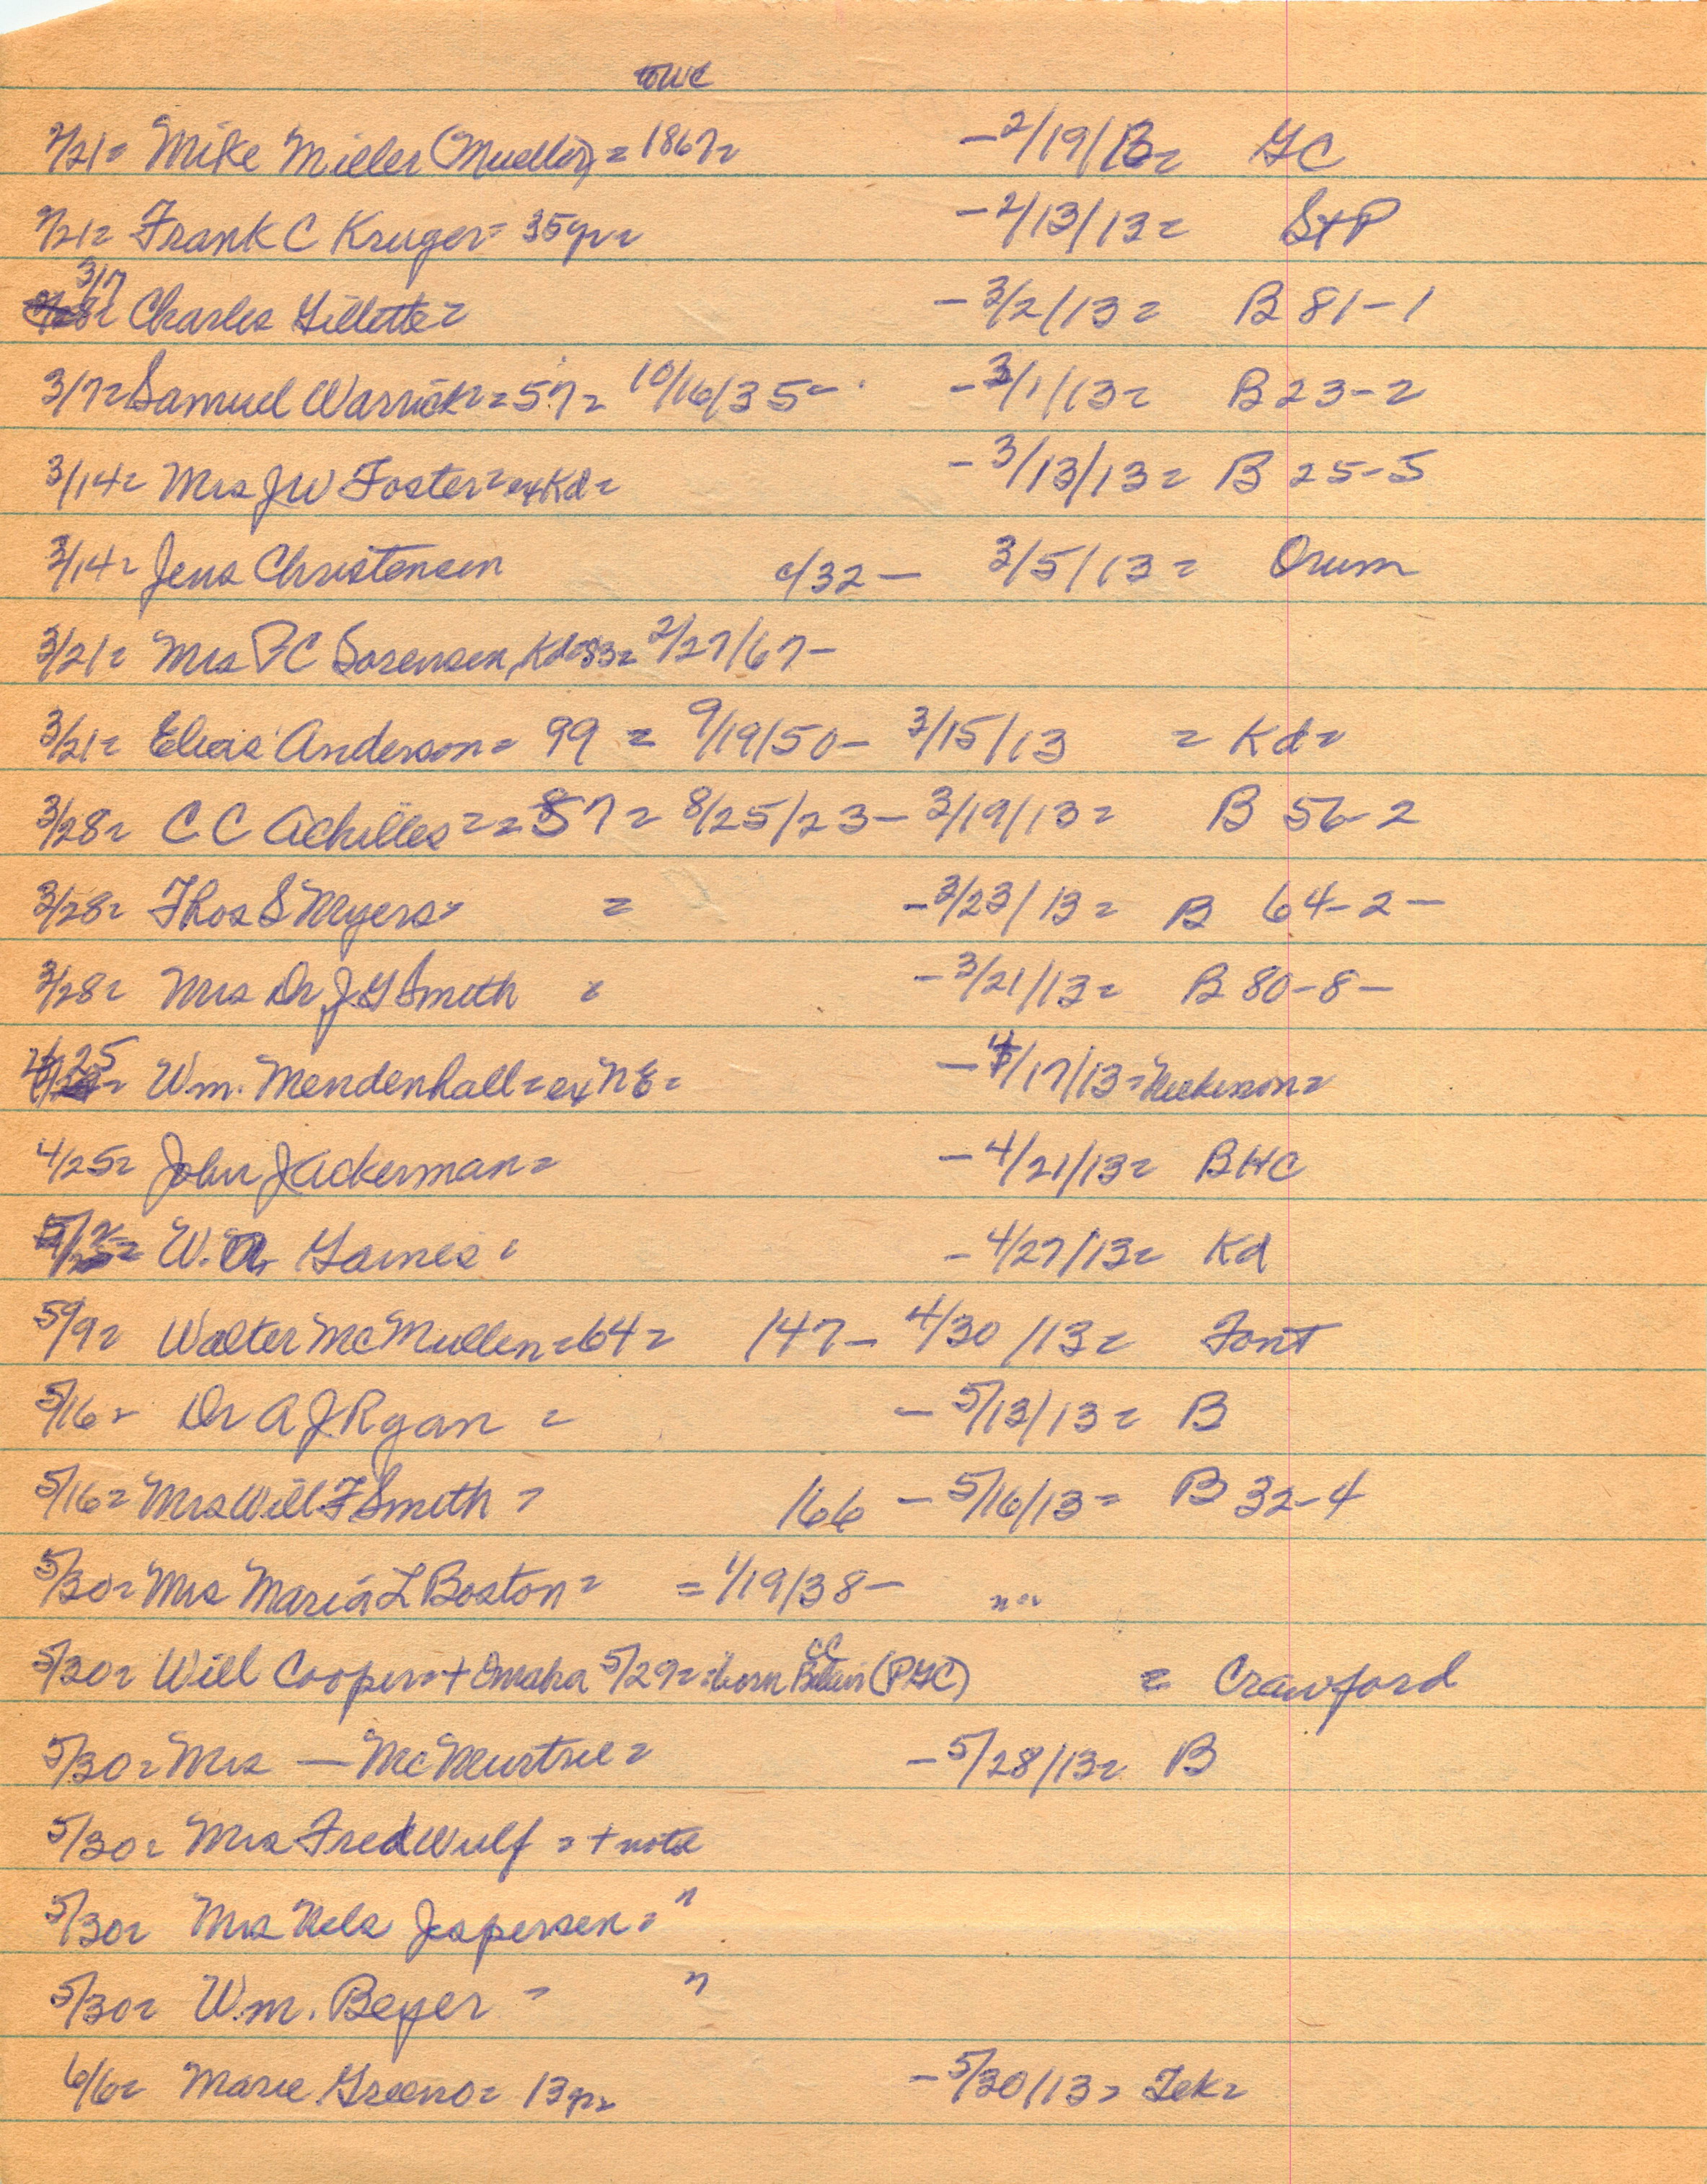 2/21= Mike Miller (Mueller) = 1867= -2/19/13= GC
2/21= Frank C Kruger= 35yr= -2/13/13= St P
3/7 Charles Gillette= -3/2/13= B 81-1
3/7= Samuel Warrick= =57= 10/16/35- -3/1/13= B 23-2
3/14= Mrs JW Foster= exKd= -3/13/13= B 25-5
3/14= Jens Christensen c/32 - 3/5/13= Orum
3/21= Mrs PC Sorensen, Kd=83= 2/27/67-
3/21= Elias Anderson= 99 = 9/19/50- 3/15/13 = Kd=
3/28= C C Achilles= =87= 8/25/23- 3/19/13= B 56-2
3/28= Thos S Myers= = -3/23/13= B 64-2-
3/28= Mrs Dr JG Smith = -3/21/13= B 80-8-
4/25 Wm. Mendenhall= ex NE= -4/17/13=
4/25= John J Ackerman= -4/21/13= BHC
5/2= W.A. Gaines= -4/27/13= Kd
5/9= Walter McMullen=64= /47- 4/30/13= Font
5/16= Dr A J Ryan = -5/13/13= B
5/16= Mrs Will F Smith = /66 -5/16/13= B 32-4
5/30= Mrs Maria L Boston= =1/19/38- " "
CC
5/30= Will Cooper= + Omaha 5/29= =born Blair (PGC) = Crawford
5/30= Mrs — McMurtrie= -5/28/13= B
5/30= Mrs Fred Wulf = + noted
5/30= Mrs Nels Jespersen= "
5/30= Wm. Beyer = "
6/6= Marie Greeno= 13yr= -5/30/13= Tek=